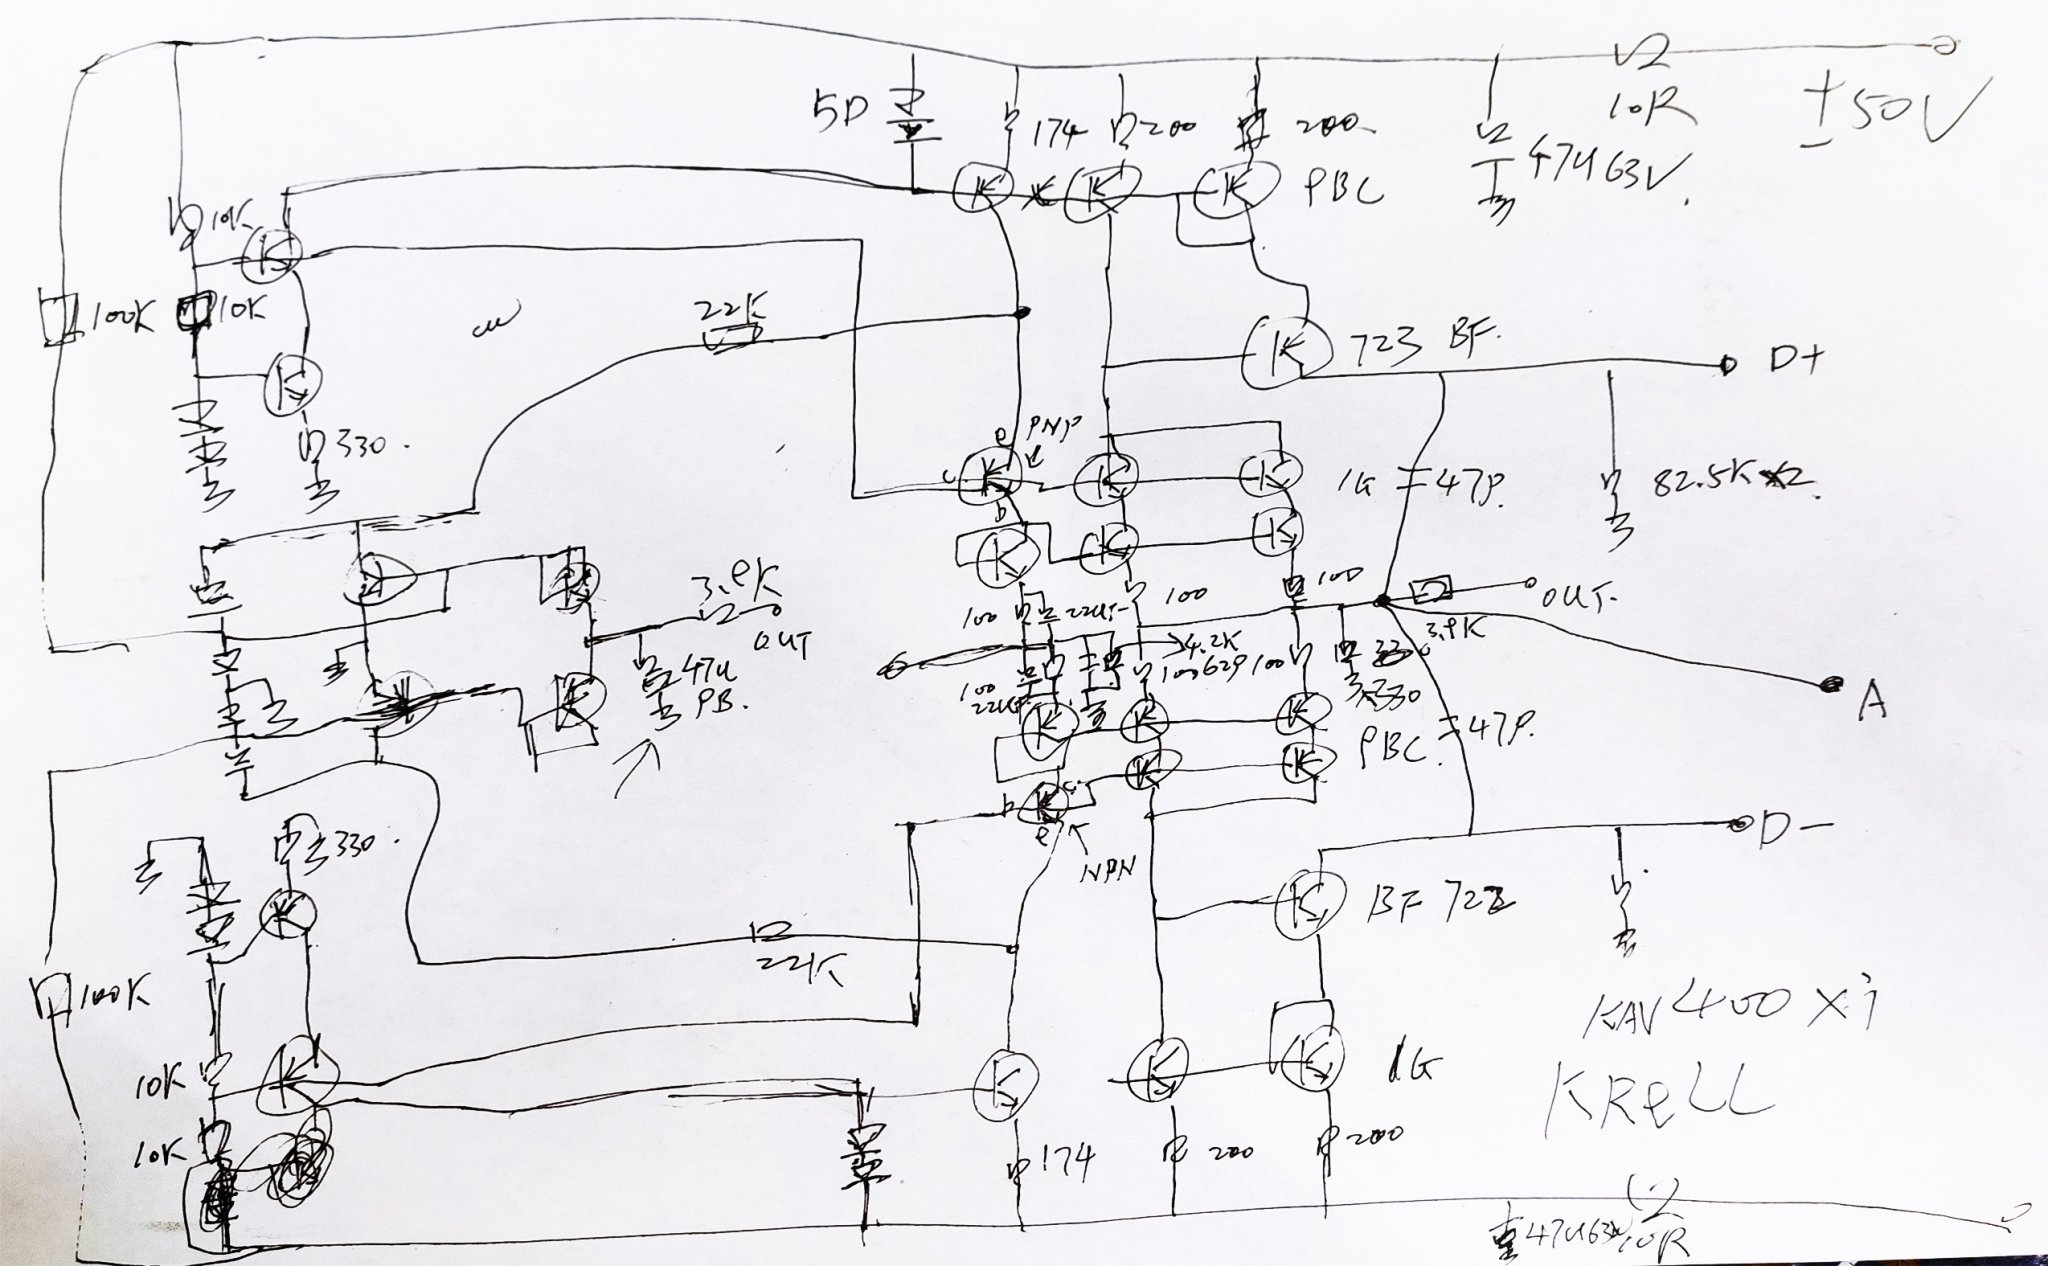 10R
±50V
5D
174
200
200
47U63V
PBC
10K
100K
10K
22K
723 BF.
D+
330.
e PNP
c
b
1G
47P.
82.5K×2.
3.9K
OUT
47U
PB.
100
100
100
OUT.
3.9K
4.2K
100
62P
100
100
330
A
PBC.
47P.
b
c
e
NPN
D-
330.
BF 722
22K
100K
KAV400xi
KRELL
10K
10K
1G
174
200
200
47U63V
10R